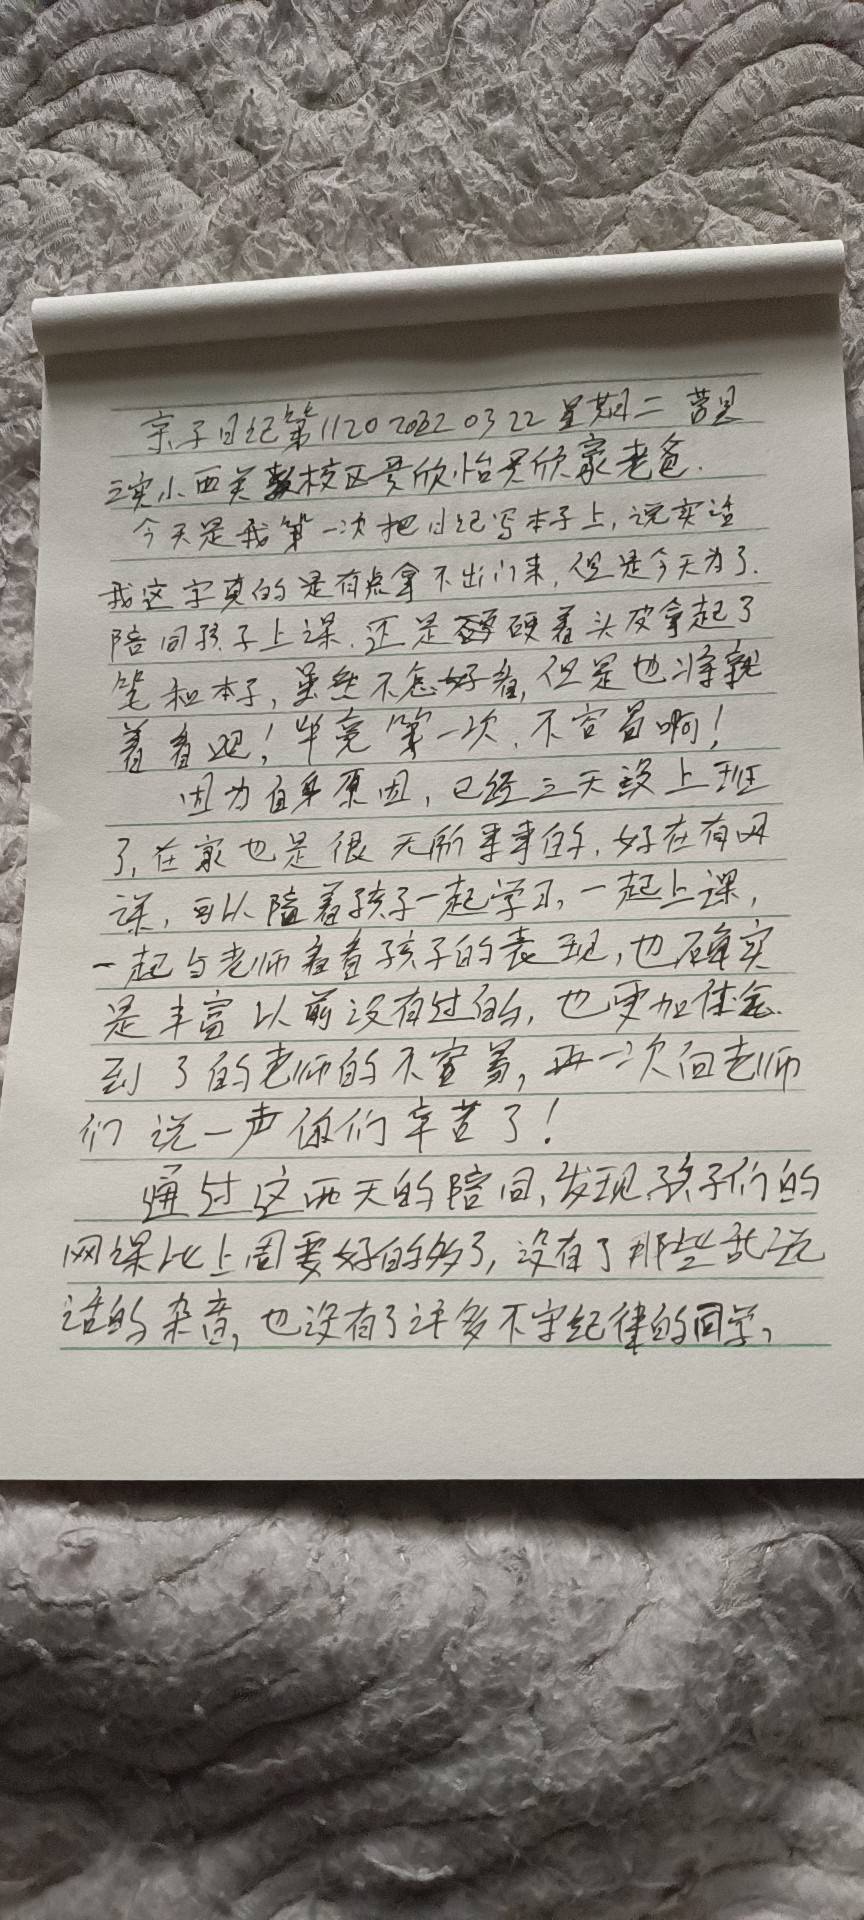 亲子日记第1120 2022 03 22 星期二 莒县
三实小西关校区 欣怡 欣豪老爸.
今天是我第一次把日记写本子上,说实话
我这字真的是有点拿不出门来,但是今天为了.
陪同孩子上课.还是硬着头皮拿起了
笔和本子,虽然不怎好看,但是也将就
着看吧!毕竟第一次.不容易啊!
因为自身原因,已经三天没上班
了,在家也是很无所事事的.好在有网
课,可以陪着孩子一起学习,一起上课,
一起与老师看着孩子的表现,也确实
是丰富以前没有过的,也更加体会
到了的老师的不容易,再一次向老师
们说一声你们辛苦了!
通过这两天的陪同,发现孩子们的
网课比上周要好的多了,没有了那些乱说
话的杂音,也没有了许多不守纪律的同学,